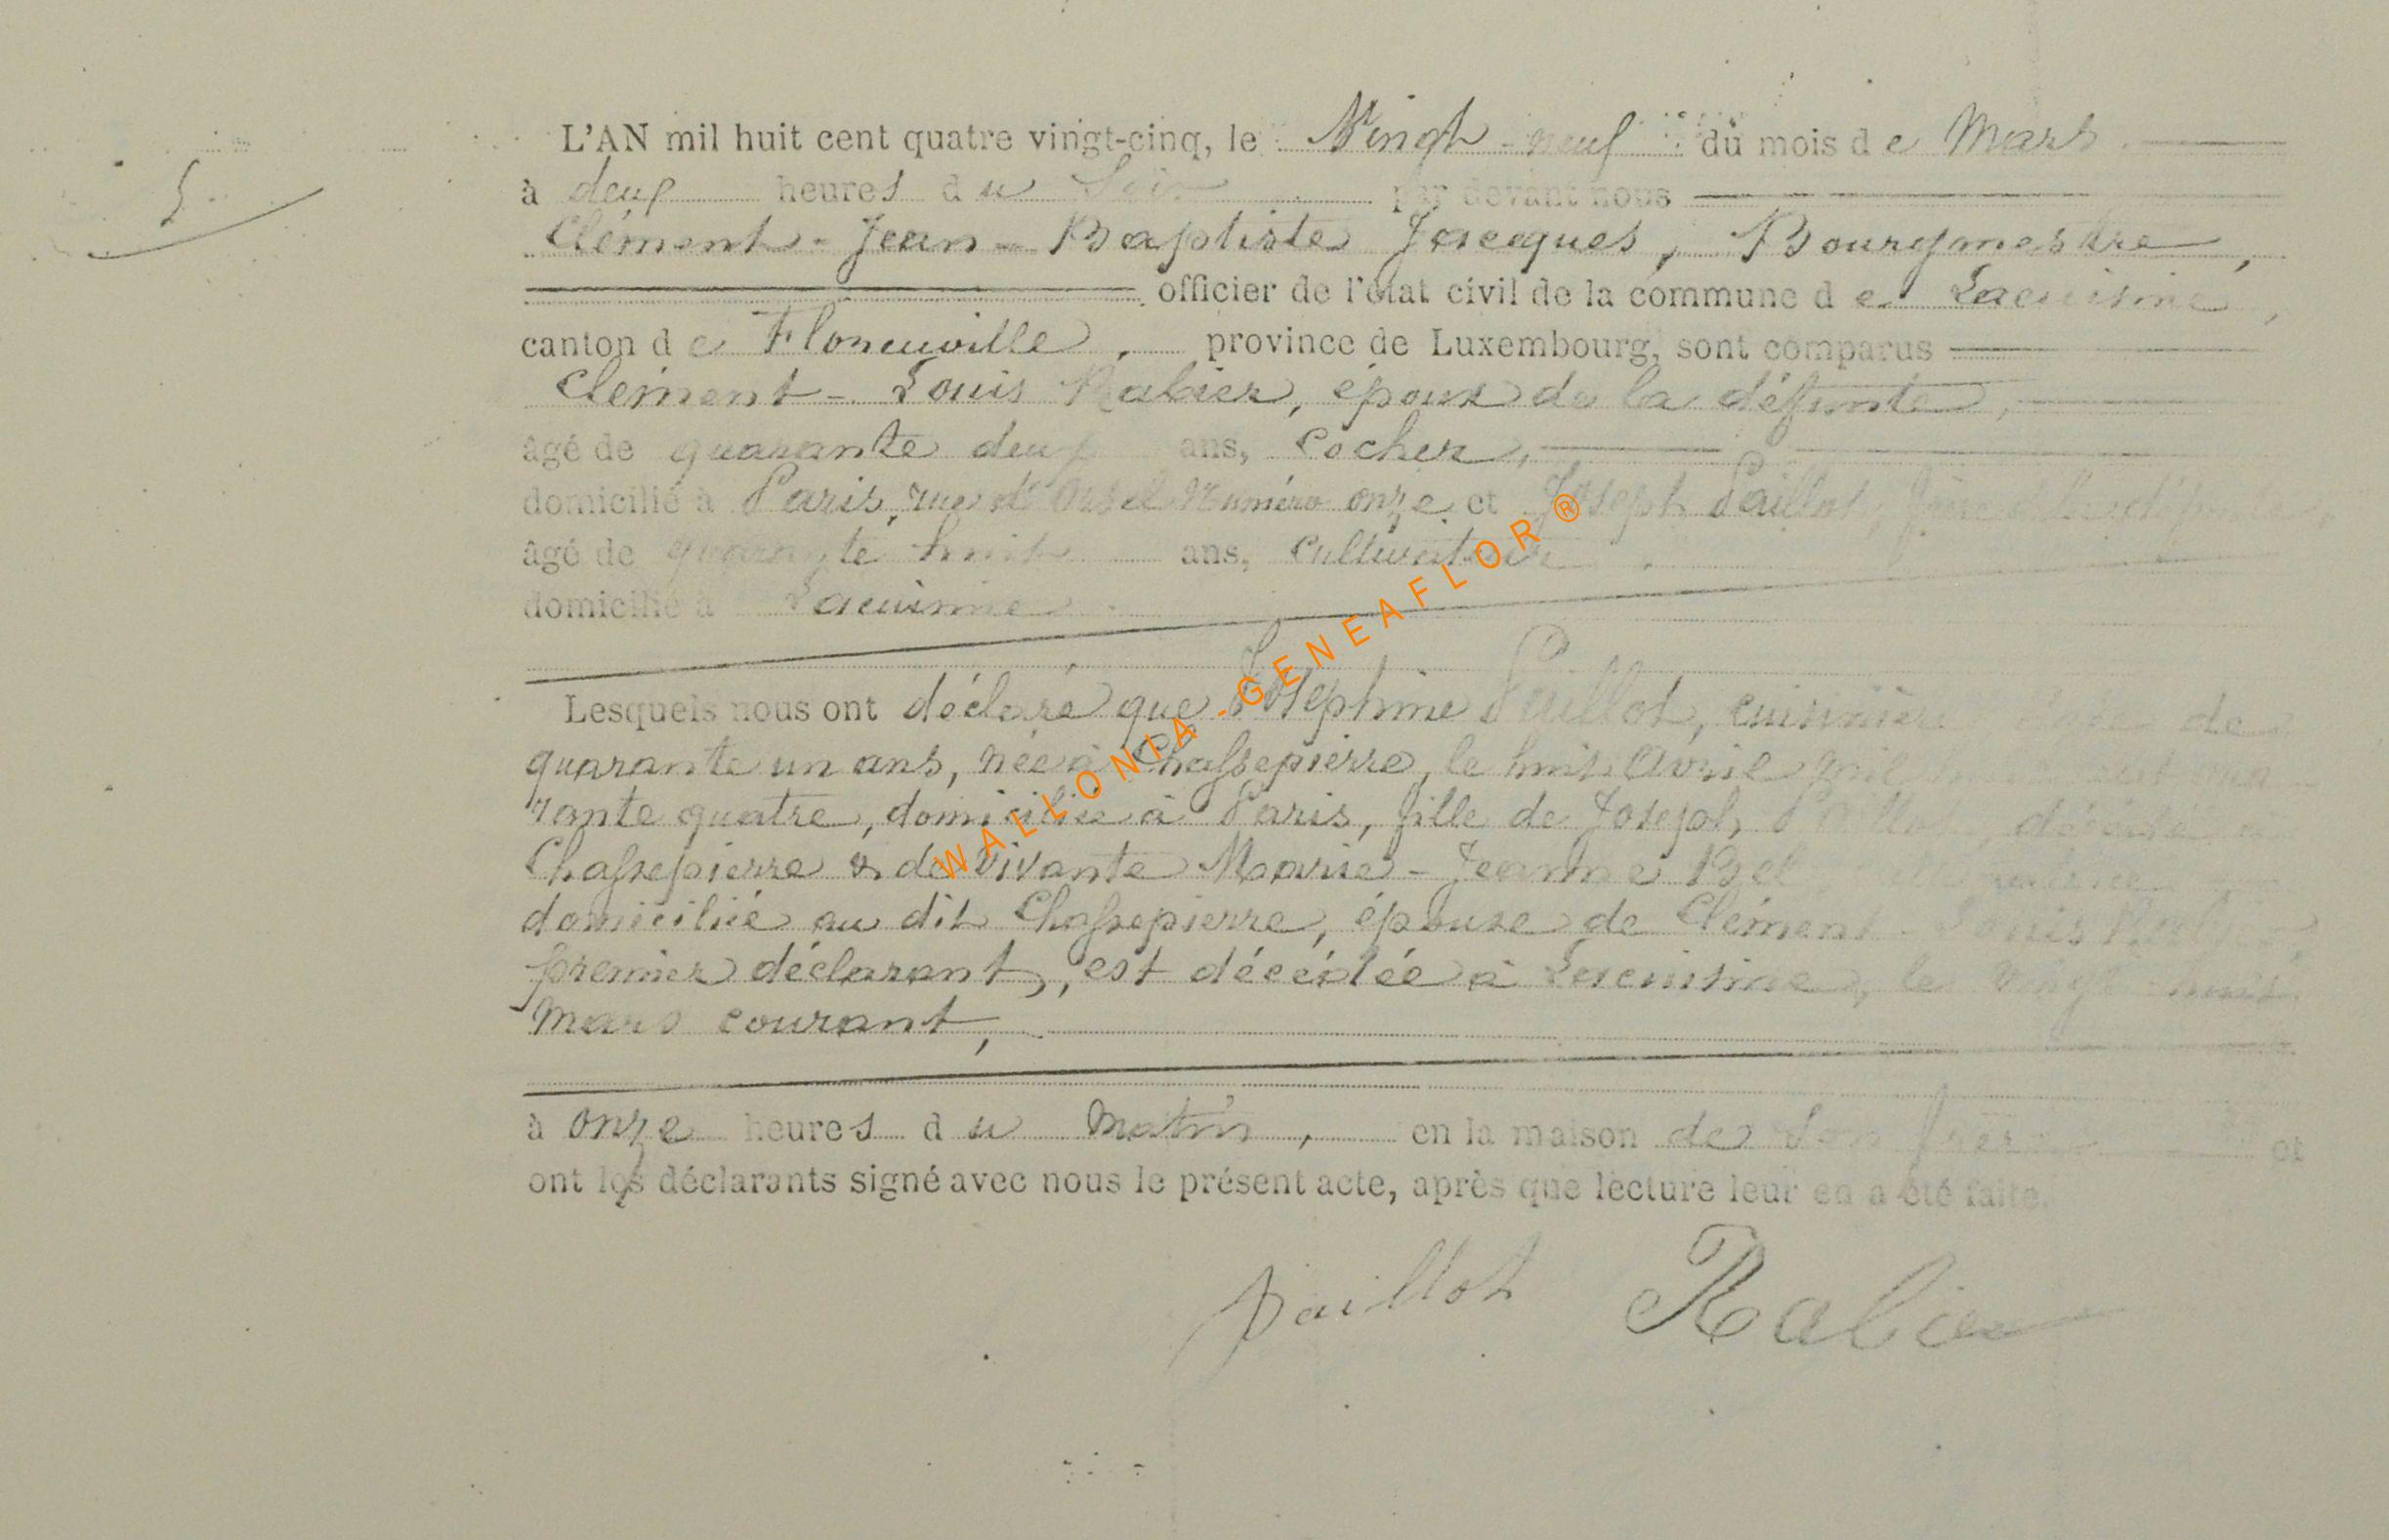 5
L'AN mil huit cent quatre vingt-cinq, le Vingt-neuf du mois de Mars
à deux heures du Soir par devant nous
Clément-Jean-Baptiste Jacques, Bourgmestre,
officier de l'état civil de la commune de Lacuisine,
canton de Florenville, province de Luxembourg, sont comparus
Clément-Louis Rabier, époux de la défunte,
âgé de quarante deux ans, Cocher,
domicilié à Paris, rue d'Orsel Numéro onze et Joseph Paillot, frère de la
âgé de quarante huit ans, Cultivateur
domicilié à Lacuisine
Lesquels nous ont déclaré que Joséphine Paillot, cuisinière de
quarante un ans, née à Chassepierre, le huit Avril mil
rante quatre, domiciliée à Paris, fille de Joseph Paillot, décédé à
Chassepierre & de vivante Marie-Jeanne
domiciliée au dit Chassepierre, épouse de Clément-Louis Rabier
premier déclarant, est décédée à Lacuisine, le vingt
Mars courant,
à onze heures du Matin, en la maison de son frère et
ont les déclarants signé avec nous le présent acte, après que lecture leur en a été faite.
Paillot Rabier
WALLONIA-GENEAFLOR®